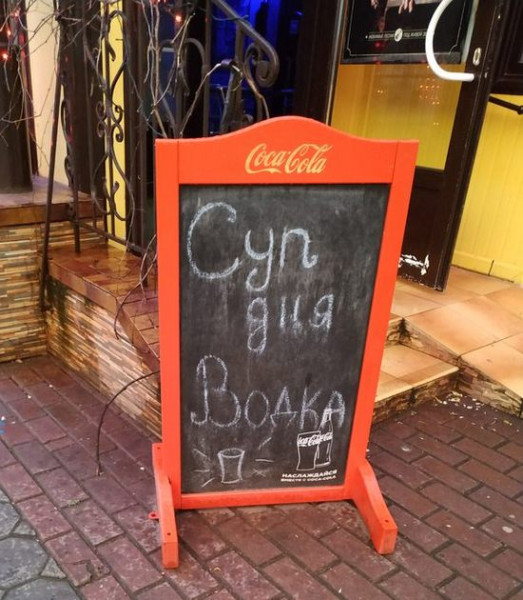 Coca-Cola
Суп
дня
Водка
Coca-Cola
НАСЛАЖДАЙСЯ
ВМЕСТЕ С COCA-COLA